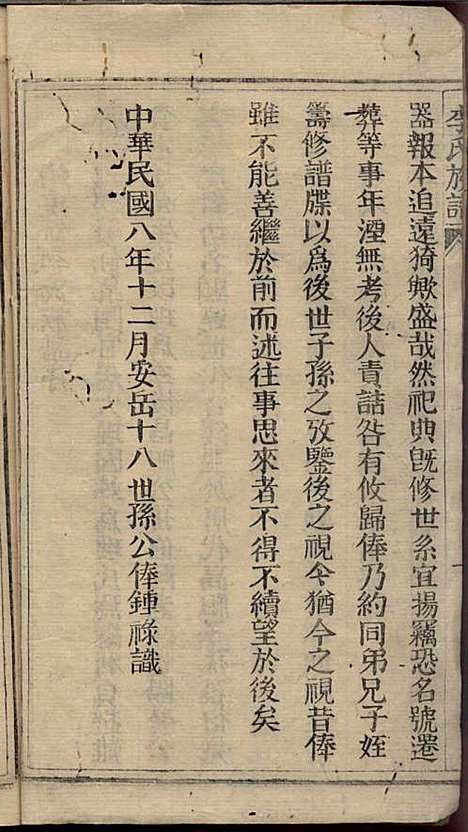 李氏族譜
器報本追遠猗歟盛哉然祀典旣修世系宜揚竊恐名號遷
葬等事年湮無考後人責詰咎有攸歸俸乃約同弟兄子姪
籌修譜牒以爲後世子孫之攷鑒後之視今猶今之視昔俸
雖不能善繼於前而述往事思來者不得不續望於後矣
中華民國八年十二月安岳十八世孫公俸鍾祿識